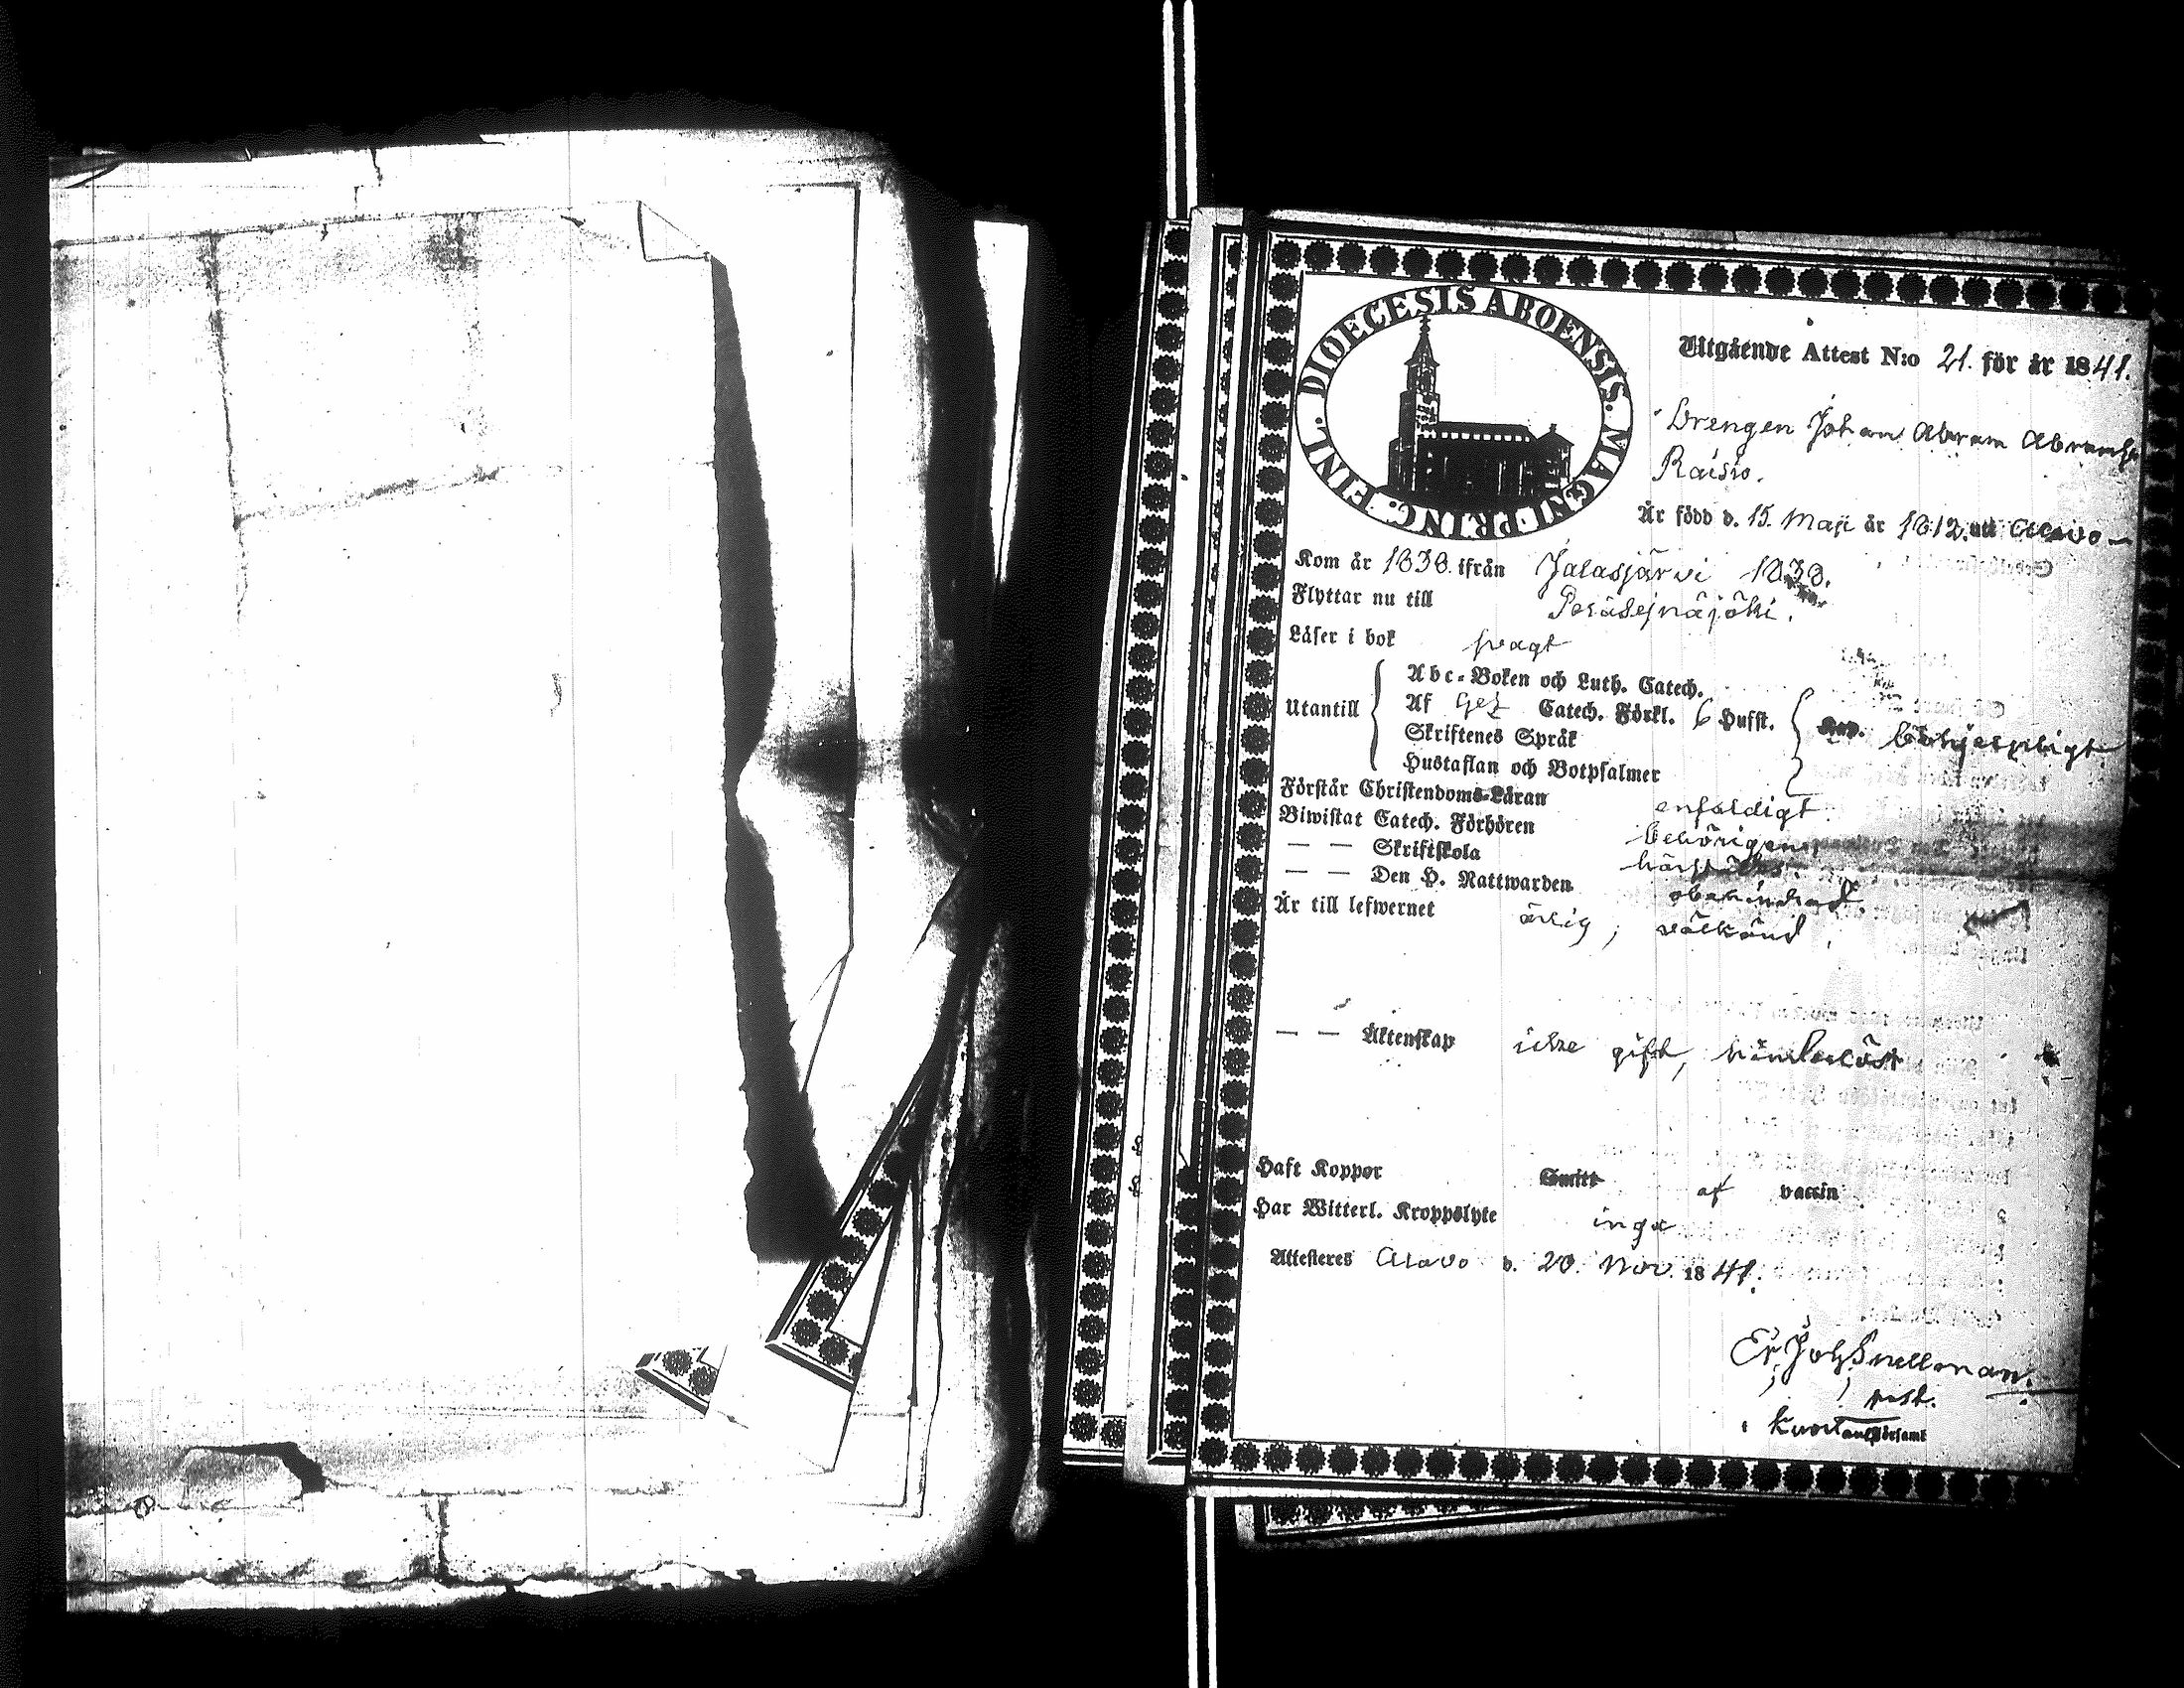 DIOECESIS ABOENSIS. MAGNI PRINC. FINL.
Utgående Attest N:o 21. för år 1841.
Drengen Johan Abram Abramss
Raisio.
Är född d. 15. Maji år 1812. uti Alavo —
Kom år 1838. ifrån Jalasjärvi 1838.
Flyttar nu till Peräsejnäjöki.
Läser i bok svagt
Abc-Boken och Luth. Catech.
Utantill Af Gez Catech. Förkl. 6 Hufst.
Skriftenes Språk
Hustaflan och Botpsalmer
Förstår Christendoms-Läran enfaldigt.
Biwistat Catech. Förhören behörigen
— — Skriftskola
— — Den H. Nattwarden obehindrad
Är till lefwernet ärlig, välkänd.
— — Äktenskap icke gift, hinderlöst
Haft Koppor Smitt af vaccin
Har Witterl. Kroppslyte inga
Attesteres Alavo d. 20. Nov. 1841.
Er. Joh. Snellman.
past.